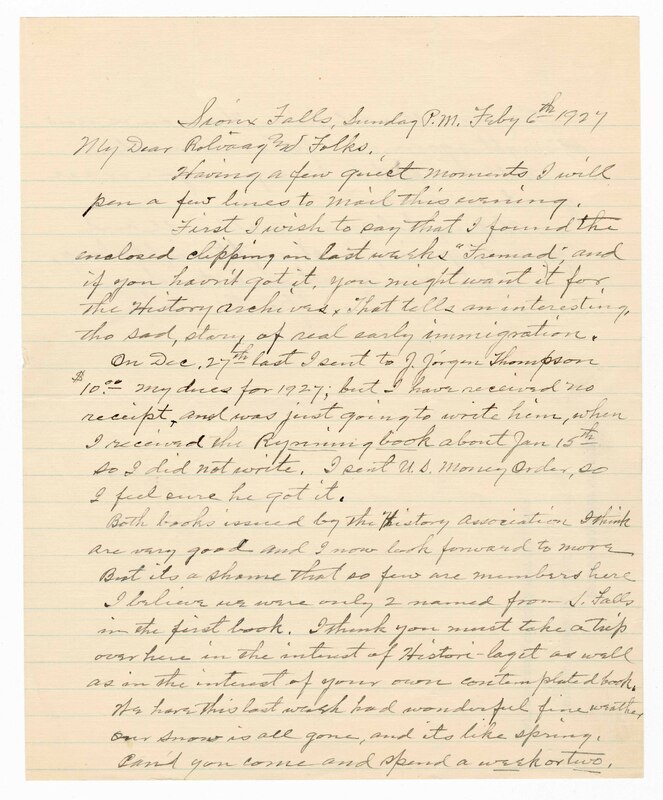 Sioux Falls, Sunday P.M. Feby 6th 1927
My Dear Rolvaag and Folks.
Having a few quiet moments I will
pen a few lines to mail this evening.
First I wish to say that I found the
enclosed clipping in last weeks "Fremad", and
if you havn't got it, you might want it for
the History archives. That tells an interesting,
tho sad, story, of real early immigration.
On Dec. 27th last I sent to J. Jörgen Thompson
$10.00 my dues for 1927; but I have received no
receipt, and was just going to write him, when
I received the Rynning book about Jan 15th
so I did not write. I sent U.S. Money Order, so
I feel sure he got it.
Both books issued by the History Association I think
are very good and I now look forward to more
But its a shame that so few are members here
I believe we were only 2 named from S. Falls
in the first book. I think you must take a trip
over here in the interest of Histori-laget as well
as in the interest of your own contemplated book.
We have this last week had wonderful fine weather
our snow is all gone, and its like spring.
Can'd you come and spend a week or two.